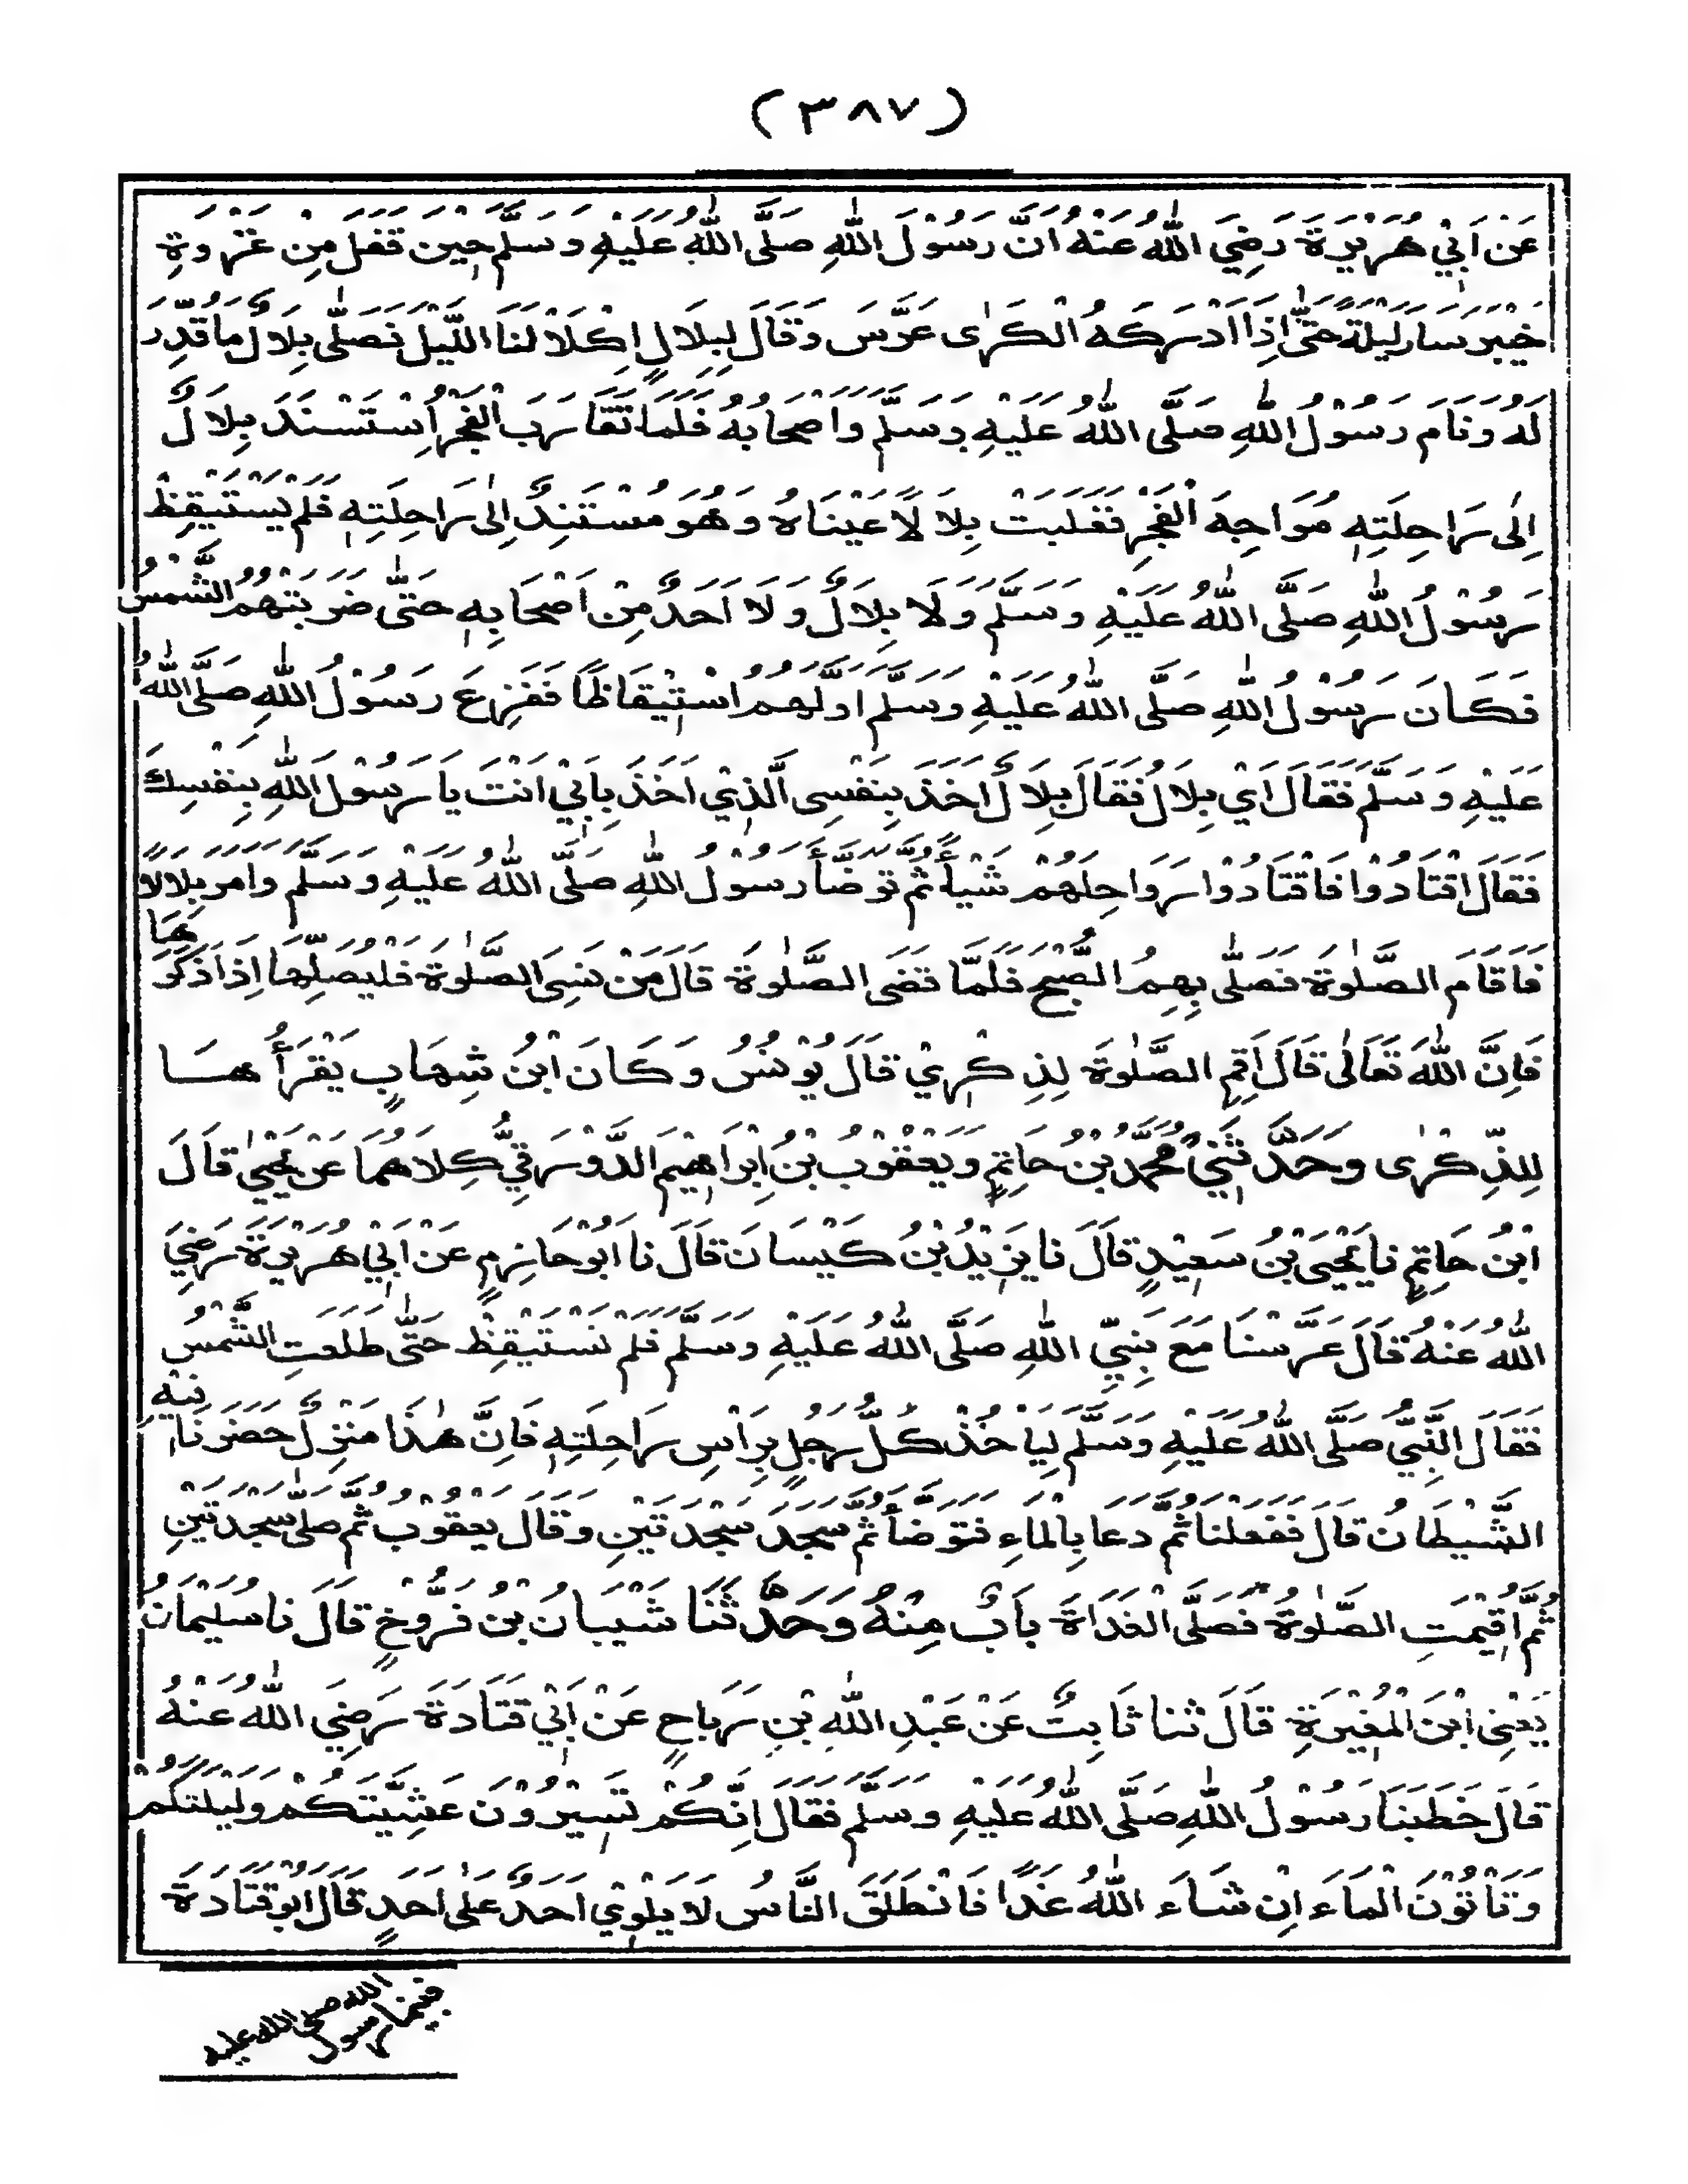 (٣٨٧)
عَنْ اَبِيْ هُرَيْرَةَ رَضِيَ اللّٰهُ عَنْهُ اَنَّ رَسُوْلَ اللّٰهِ صَلَّى اللّٰهُ عَلَيْهِ وَسَلَّمَ حِيْنَ قَفَلَ مِنْ غَزْوَةِ
خَيْبَرَ سَارَ لَيْلَةً حَتّٰى اِذَا اَدْرَكَهُ الْكَرٰى عَرَّسَ وَقَالَ لِبِلَالٍ اِكْلَأْ لَنَا اللَّيْلَ فَصَلّٰى بِلَالٌ مَا قُدِّرَ
لَهُ وَنَامَ رَسُوْلُ اللّٰهِ صَلَّى اللّٰهُ عَلَيْهِ وَسَلَّمَ وَاَصْحَابُهُ فَلَمَّا تَقَارَبَ الْفَجْرُ اِسْتَسْنَدَ بِلَالٌ
اِلٰى رَاحِلَتِهٖ مُوَاجِهَ الْفَجْرِ فَغَلَبَتْ بِلَالًا عَيْنَاهُ وَهُوَ مُسْتَنِدٌ اِلٰى رَاحِلَتِهٖ فَلَمْ يَسْتَيْقِظْ
رَسُوْلُ اللّٰهِ صَلَّى اللّٰهُ عَلَيْهِ وَسَلَّمَ وَلَا بِلَالٌ وَلَا اَحَدٌ مِنْ اَصْحَابِهٖ حَتّٰى ضَرَبَتْهُمُ الشَّمْسُ
فَكَانَ رَسُوْلُ اللّٰهِ صَلَّى اللّٰهُ عَلَيْهِ وَسَلَّمَ اَوَّلَهُمُ اسْتِيْقَاظًا فَفَزِعَ رَسُوْلُ اللّٰهِ صَلَّى اللّٰهُ
عَلَيْهِ وَسَلَّمَ فَقَالَ اَيْ بِلَالُ فَقَالَ بِلَالٌ اَخَذَ بِنَفْسِى الَّذِيْ اَخَذَ بِاَبِيْ اَنْتَ يَا رَسُوْلَ اللّٰهِ بِنَفْسِكَ
فَقَالَ اقْتَادُوْا فَاقْتَادُوْا رَوَاحِلَهُمْ شَيْأً ثُمَّ تَوَضَّأَ رَسُوْلُ اللّٰهِ صَلَّى اللّٰهُ عَلَيْهِ وَسَلَّمَ وَاَمَرَ بِلَالًا
فَاَقَامَ الصَّلٰوةَ فَصَلّٰى بِهِمُ الصُّبْحَ فَلَمَّا قَضَى الصَّلٰوةَ قَالَ مَنْ نَسِىَ الصَّلٰوةَ فَلْيُصَلِّهَا اِذَا ذَكَرَهَا
فَاِنَّ اللّٰهَ تَعَالٰى قَالَ اَقِمِ الصَّلٰوةَ لِذِكْرِيْ قَالَ يُوْنُسُ وَكَانَ ابْنُ شِهَابٍ يَقْرَأُهَا
لِلذِّكْرٰى وَحَدَّثَنِيْ مُحَمَّدُ بْنُ حَاتِمٍ وَيَعْقُوْبُ بْنُ اِبْرَاهِيْمَ الدَّوْرَقِيُّ كِلَاهُمَا عَنْ يَحْيٰى قَالَ
ابْنُ حَاتِمٍ نَا يَحْيَى بْنُ سَعِيْدٍ قَالَ نَا يَزِيْدُ بْنُ كَيْسَانَ قَالَ نَا اَبُوْحَازِمٍ عَنْ اَبِيْ هُرَيْرَةَ رَضِيَ
اللّٰهُ عَنْهُ قَالَ عَرَّسْنَا مَعَ نَبِيِّ اللّٰهِ صَلَّى اللّٰهُ عَلَيْهِ وَسَلَّمَ فَلَمْ نَسْتَيْقِظْ حَتّٰى طَلَعَتِ الشَّمْسُ
فَقَالَ النَّبِيُّ صَلَّى اللّٰهُ عَلَيْهِ وَسَلَّمَ لِيَاْخُذْ كُلُّ رَجُلٍ بِرَاْسِ رَاحِلَتِهٖ فَاِنَّ هٰذَا مَنْزِلٌ حَضَرَنَا فِيْهِ
الشَّيْطَانُ قَالَ فَفَعَلْنَا ثُمَّ دَعَا بِالْمَاءِ فَتَوَضَّأَ ثُمَّ سَجَدَ سَجْدَتَيْنِ وَقَالَ يَعْقُوْبُ ثُمَّ صَلّٰى سَجْدَتَيْنِ
ثُمَّ اُقِيْمَتِ الصَّلٰوةُ فَصَلَّى الْغَدَاةَ بَابٌ مِنْهُ وَحَدَّثَنَا شَيْبَانُ بْنُ فَرُّوْخٍ قَالَ نَا سُلَيْمَانُ
يَعْنِى ابْنَ الْمُغِيْرَةِ قَالَ ثنا ثَابِتٌ عَنْ عَبْدِ اللّٰهِ بْنِ رَبَاحٍ عَنْ اَبِيْ قَتَادَةَ رَضِيَ اللّٰهُ عَنْهُ
قَالَ خَطَبَنَا رَسُوْلُ اللّٰهِ صَلَّى اللّٰهُ عَلَيْهِ وَسَلَّمَ فَقَالَ اِنَّكُمْ تَسِيْرُوْنَ عَشِيَّتَكُمْ وَلَيْلَتَكُمْ
وَتَاْتُوْنَ الْمَاءَ اِنْ شَاءَ اللّٰهُ غَدًا فَانْطَلَقَ النَّاسُ لَا يَلْوِيْ اَحَدٌ عَلٰى اَحَدٍ قَالَ اَبُوْقَتَادَةَ
فبينما رسول الله صلى الله عليه